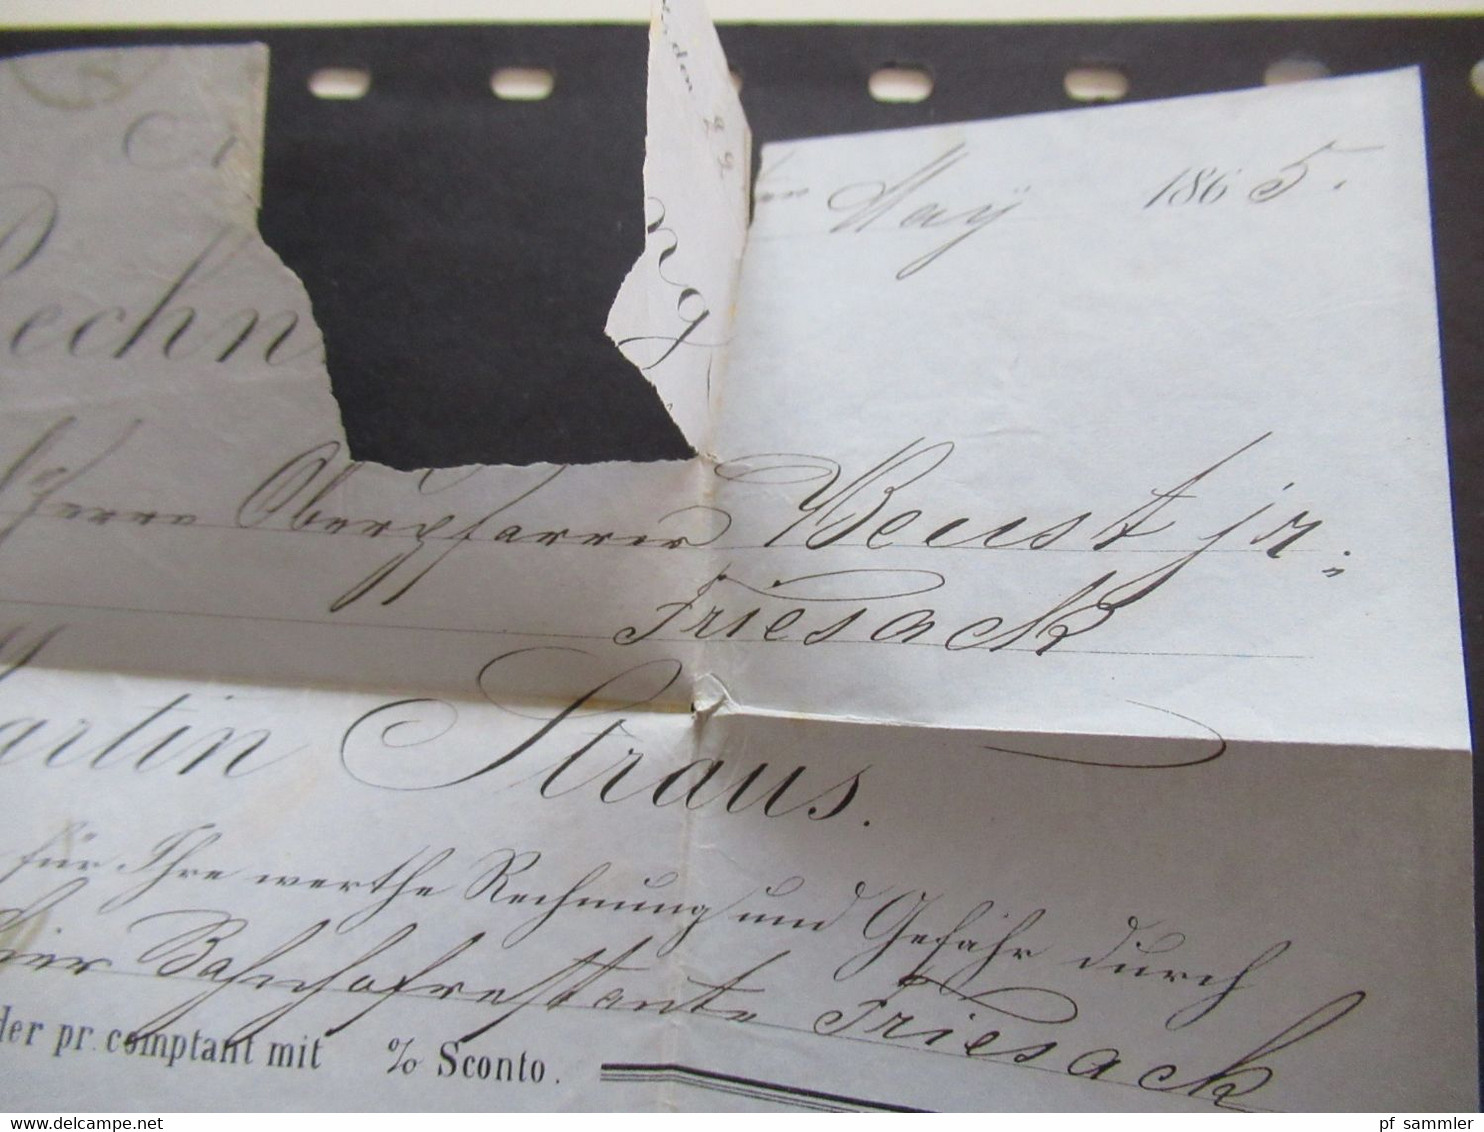 May 1865.
Rechn ng
Herrn Oberpfarrer Beust jr.
Friesack
Martin Straus.
für Ihre werthe Rechnung und Gefahr durch
Bahnhof restante Friesack
der pr. comptant mit % Sconto.
pf_sammler